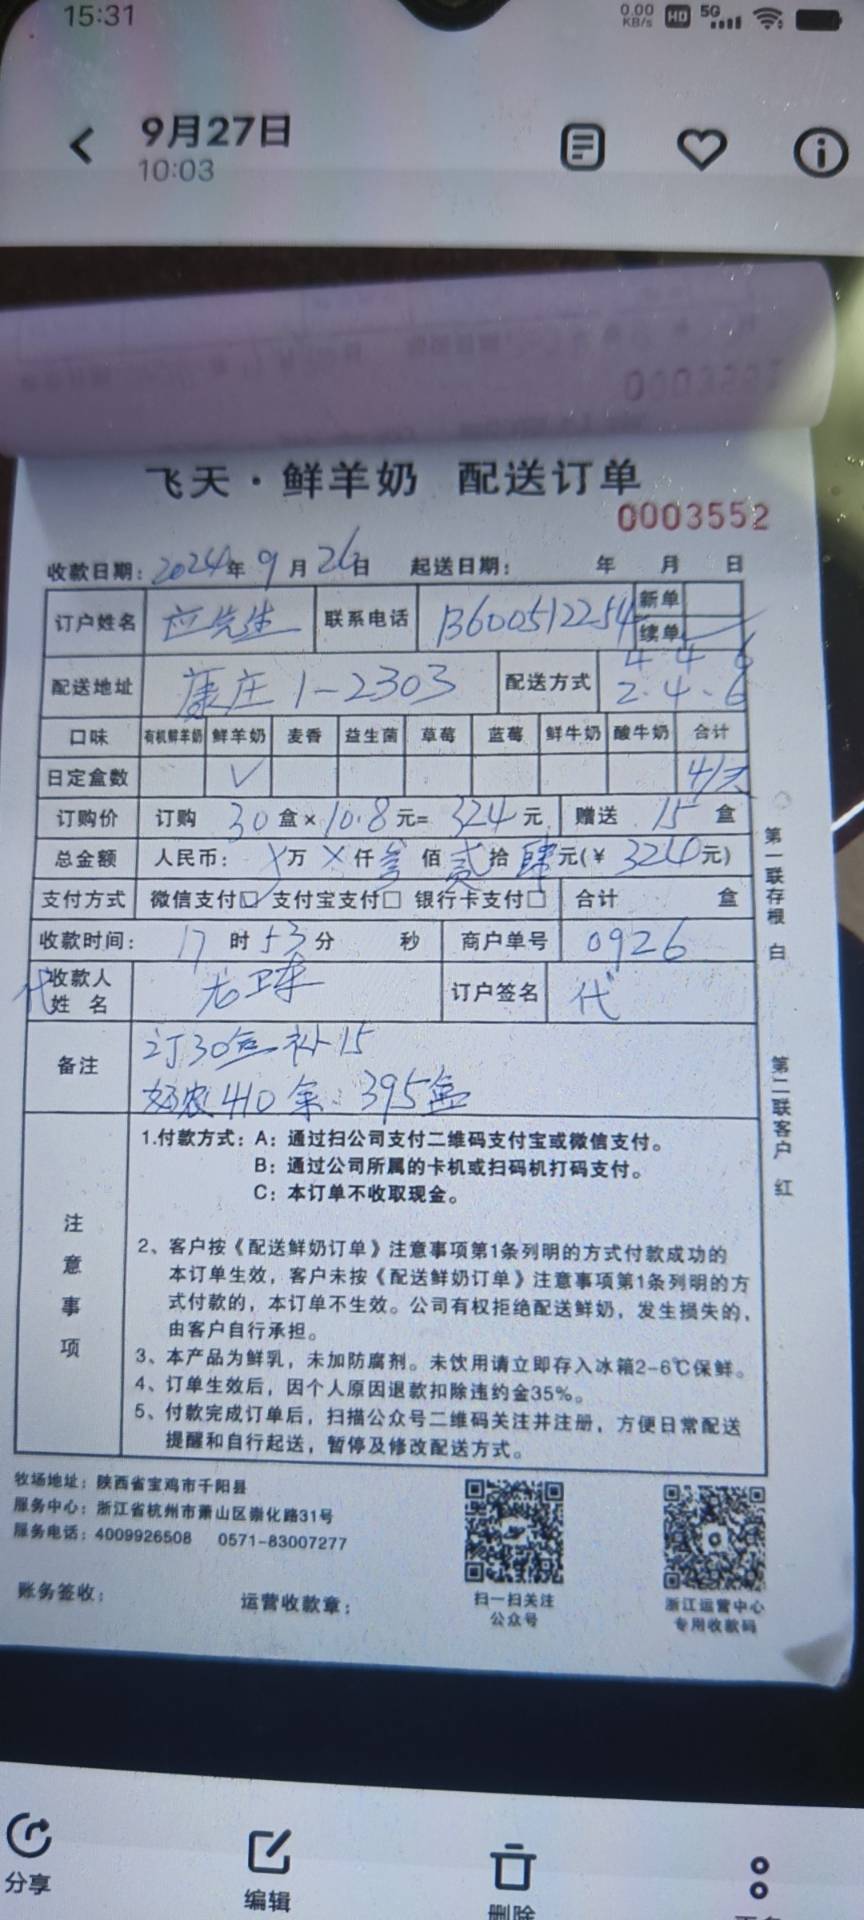 15:31
0.00 KB/s HD 5G
9月27日
10:03
飞天·鲜羊奶 配送订单
0003552
收款日期: 2024年9月26日 起送日期: 年 月 日
订户姓名 应先生 联系电话 13600512254 新单
续单 ✓
配送地址 康庄1-2303 配送方式 4 4 6
2.4.6
口味 有机鲜羊奶 鲜羊奶 麦香 益生菌 草莓 蓝莓 鲜牛奶 酸牛奶 合计
日定盒数 ✓ 4/天
订购价 订购 30盒×10.8元=324元 赠送 15盒
总金额 人民币: ×万×仟叁佰贰拾肆元(¥324元)
支付方式 微信支付☑ 支付宝支付□ 银行卡支付□ 合计 盒
收款时间: 17时53分 秒 商户单号 0926
代收款人姓名 订户签名 代
备注 订30盒补15
410 395盒
注意事项
1.付款方式: A: 通过扫公司支付二维码支付宝或微信支付。
B: 通过公司所属的卡机或扫码机打码支付。
C: 本订单不收取现金。
2、客户按《配送鲜奶订单》注意事项第1条列明的方式付款成功的
本订单生效，客户未按《配送鲜奶订单》注意事项第1条列明的方
式付款的，本订单不生效。公司有权拒绝配送鲜奶，发生损失的，
由客户自行承担。
3、本产品为鲜乳，未加防腐剂。未饮用请立即存入冰箱2-6℃保鲜。
4、订单生效后，因个人原因退款扣除违约金35%。
5、付款完成订单后，扫描公众号二维码关注并注册，方便日常配送
提醒和自行起送，暂停及修改配送方式。
第一联存根 白
第二联客户 红
牧场地址: 陕西省宝鸡市千阳县
服务中心: 浙江省杭州市萧山区崇化路31号
服务电话: 4009926508 0571-83007277
扫一扫关注
公众号
浙江运营中心
专用收款码
账务签收: 运营收款章:
分享
编辑
删除